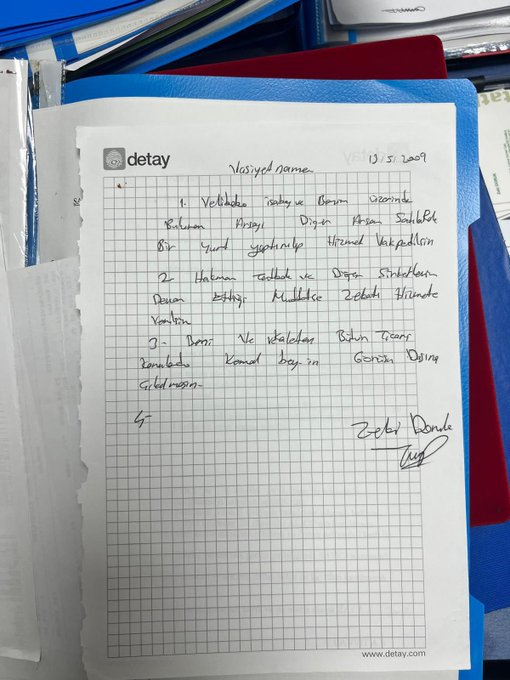 detay
Vasiyetname 13.5.2009
1. Velibaba isabey ve Benim üzerinde
Bulunan Arsayı Diğer Arsam Satılıpta
Bir yurt yaptırılıp Hizmet Vakfedilsin
2 Hakman ve Diğer Şirketlerim
Devam Ettiği Müddetçe Zekatı Hizmete
Verilsin
3 - Beni Ve Bütün Ticari
Konularda Kemal bey-in Görüşü Dışına
Çıkılmasın-
4-
Zeki
www.detay.com